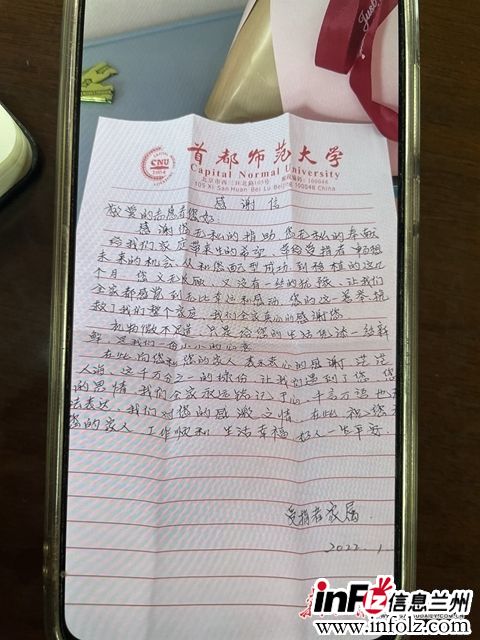 Just
CNU
1954
首都师范大学
Capital Normal University
北京市西三环北路105号 邮政编码:100048
105 Xi San Huan Bei Lu Beijing 100048 China
感谢信
敬爱的志愿者您好:
感谢您无私的捐助 您无私的奉献
给我们家庭带来生的希望,等给受捐者 畅想
未来的机会,从和您配型成功 到移植的这几
个月 您义无反顾,又没有一丝的犹豫,让我们
全家都感觉到无比幸运和感动,您的这一善举拯
救了我们整个家庭,我们全家衷心的感谢您
礼物微不足道 只是给您的生活凭添一丝新
鲜 是我们一份小小的心意
在此向您和您的家人 表示衷心的感谢 茫茫
人海 这千万分之一的缘份 让我们遇到了您 您
的恩情 我们全家永远铭记于心 千言万语 也
法表达 我们对您的感激之情 在此祝您
您的家人 工作顺利 生活幸福 好人一生平安
受捐者家属
2022.1
inFlz 信息兰州
www.infolz.com